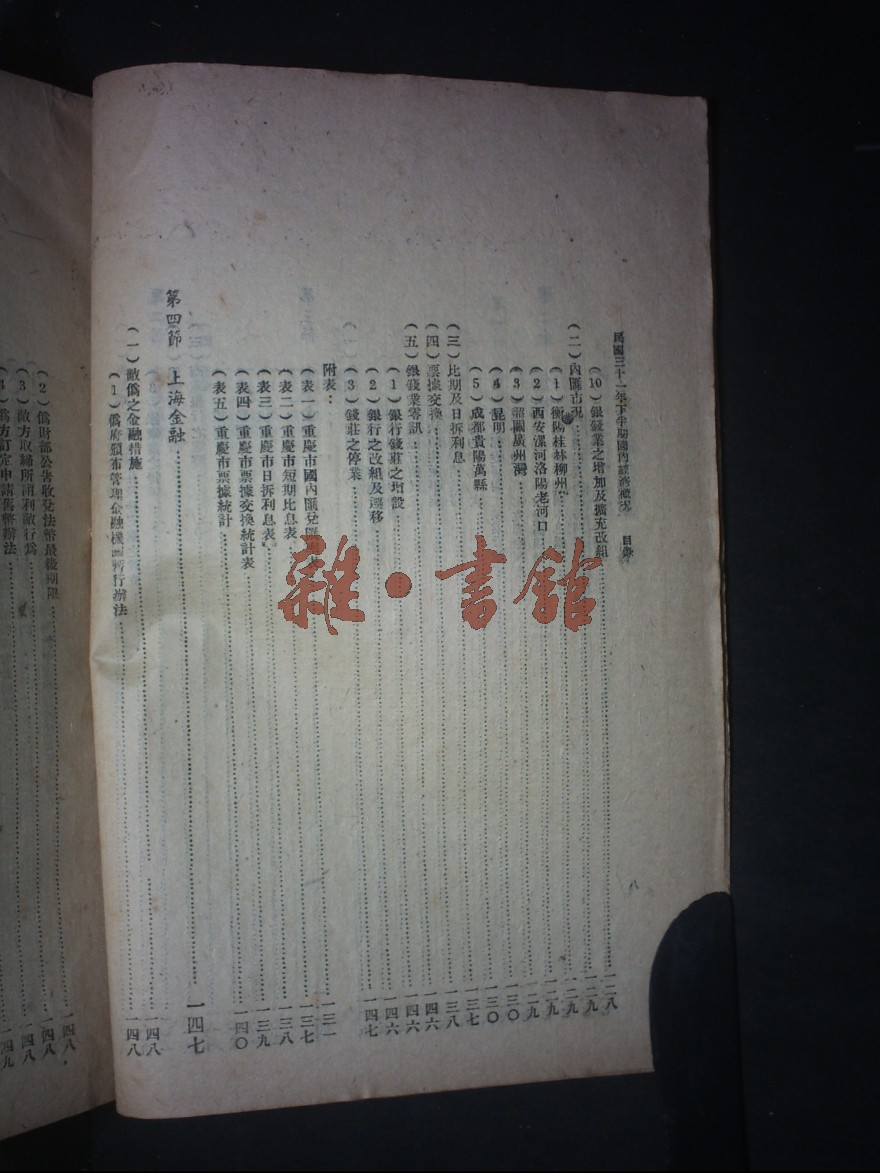 民國三十一年下半期國內經濟概況 目錄
(10)銀錢業之增加及擴充改組 一二八
(二)內匯市況 一二九
(1)衡陽桂林柳州 一二九
(2)西安漯河洛陽老河口 一二九
(3)韶關廣州灣 一三〇
(4)昆明 一三〇
(5)成都貴陽萬縣 一三七
(三)比期及日拆利息 一三八
(四)票據交換 一四六
(五)銀錢業零訊 一四六
(1)銀行錢莊之增設 一四六
(2)銀行之改組及遷移
(3)錢莊之停業 一四七
附表：
(表一)重慶市國內匯兌 一三一
(表二)重慶市短期比息表 一三七
(表三)重慶市日拆利息表 一三八
(表四)重慶市票據交換統計表 一三九
(表五)重慶市票據統計 一四〇
第四節 上海金融 一四七
(一)敵偽之金融措施 一四八
(1)偽府頒布管理金融機關暫行辦法 一四八
(2)偽財部公告收兌法幣最後期限 一四八
(3)敵方取締所謂利敵行為 一四八
(4)偽方訂定申請舊幣辦法 一四九
雜·書館
八